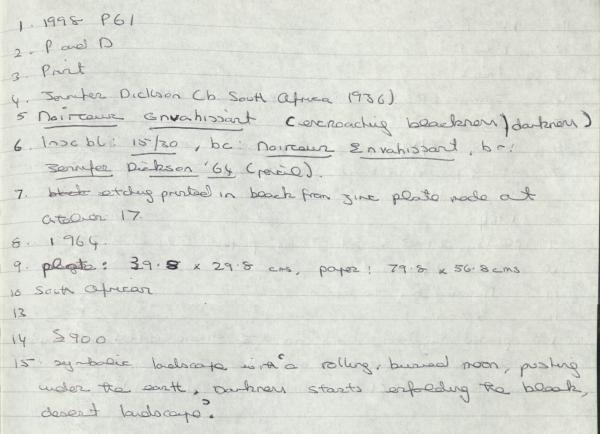 1. 1998 P61
2. P and D
3. Print
4. Jennifer Dickson (b. South Africa 1936)
5 Noirceur Envahissant (encroaching blackness/darkness)
6. Insc bl: 15/30, bc: Noirceur Envahissant, br:
Jennifer Dickson '64 (pencil).
7. etching printed in black from zinc plate made at
atelier 17.
8. 1964
9. plate: 39.8 x 29.8 cms, paper: 79.8 x 56.8 cms
10 South African
13
14 $900
15. "symbolic landscape with a rolling, buried moon, pushing
under the earth. Darkness starts enfolding the bleak,
desert landscape".